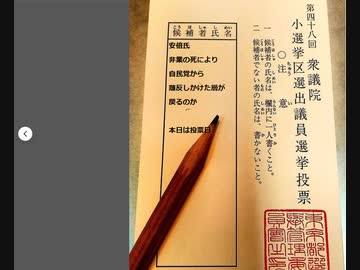 第四十八回 衆議院
小選挙区選出議員選挙投票
〇注意
一 候補者の氏名は、欄内に一人書くこと。
二 候補者でない者の氏名は、書かないこと。
候補者氏名
安倍氏
非業の死により
自民党から
離反しかけた層が
戻るのか
本日は投票日